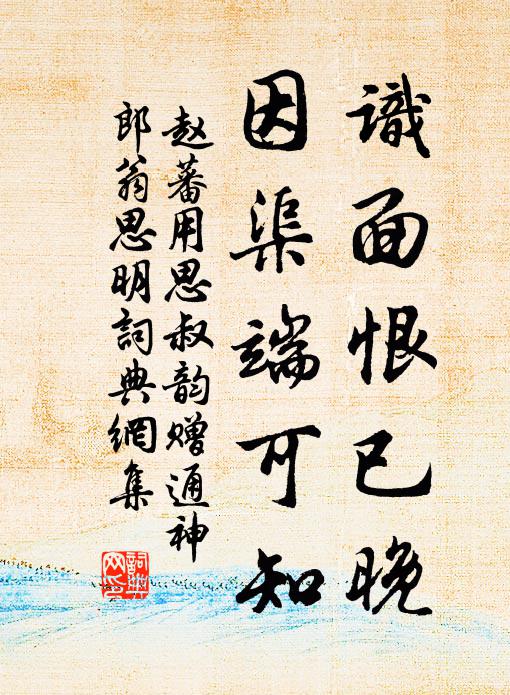 識面恨已晚
因渠端可知
赵蕃用思叔韵赠通神
郎翁思明詞典網集